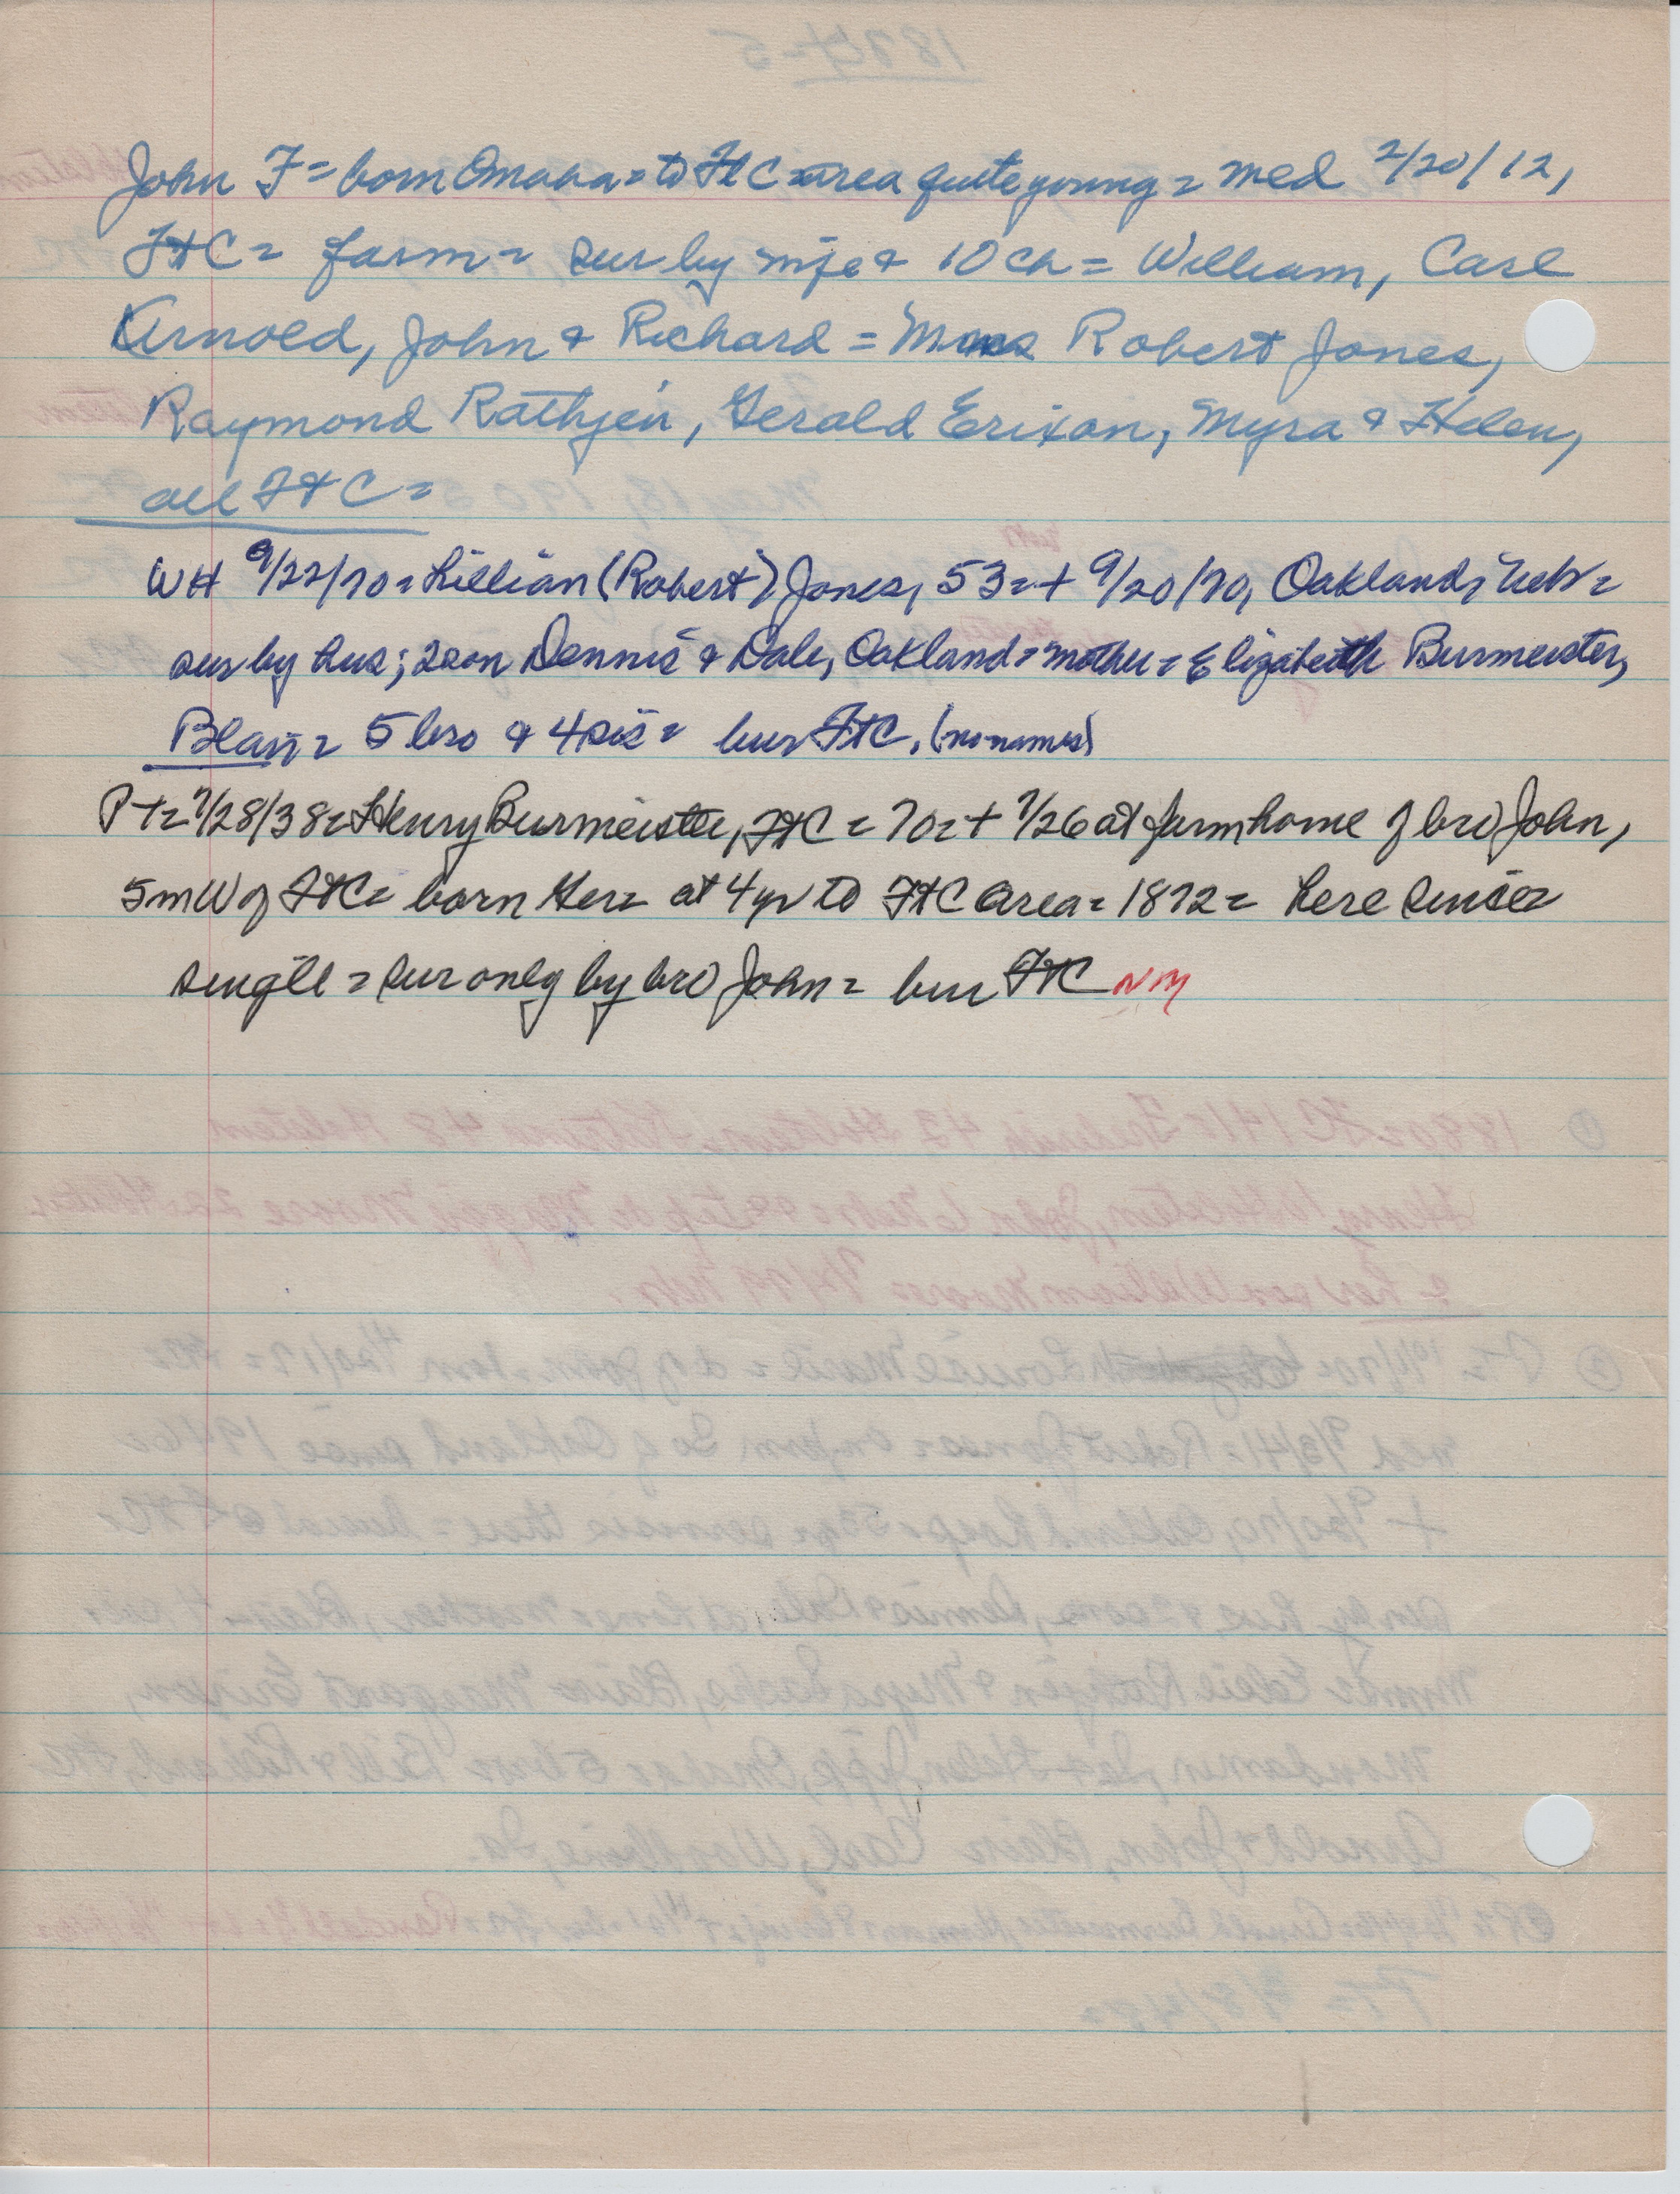 John F = born Omaha = to FtC area quite young = med 2/20/12,
FtC = farm = sur by wife & 10 ch = William, Carl
Arnold, John & Richard = Mmes Robert Jones,
Raymond Rathjen, Gerald Erixon, Myra & Helen,
all FtC =
WH 9/22/70 = Lillian (Robert) Jones, 53 = + 9/20/70, Oakland, Nebr =
sur by hus; 2 son Dennis & Dale, Oakland = mother = Elizabeth Burmeister,
Blair = 5 bro & 4 sis = bur FtC. (no names)
PT = 7/28/38 = Henry Burmeister, FtC = 70 = + 7/26 at farm home of bro John,
5 m W of FtC = born Ger = at 4 yr to FtC area = 1872 = here since =
single = sur only by bro John = bur FtC NM